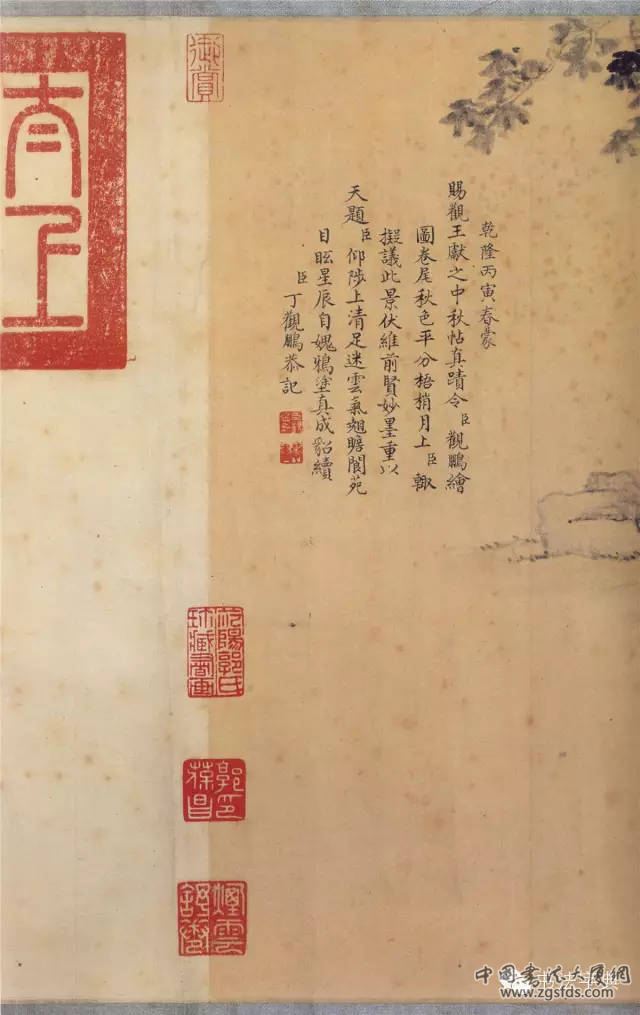 乾隆丙寅春蒙
賜觀王獻之中秋帖真蹟令臣觀鵬繪
圖卷尾秋色平分梧梢月上臣輙
擬議此景伏維前賢妙墨重以
天題臣仰陟上清足迷雲氣翹瞻閬苑
目眩星辰自媿鴉塗真成貂續
臣丁觀鵬恭記
御賞
太上
范陽郭氏
珍藏書畫
郭氏
葆昌
煙雲
中國書法大厦網
www.zgsfds.com